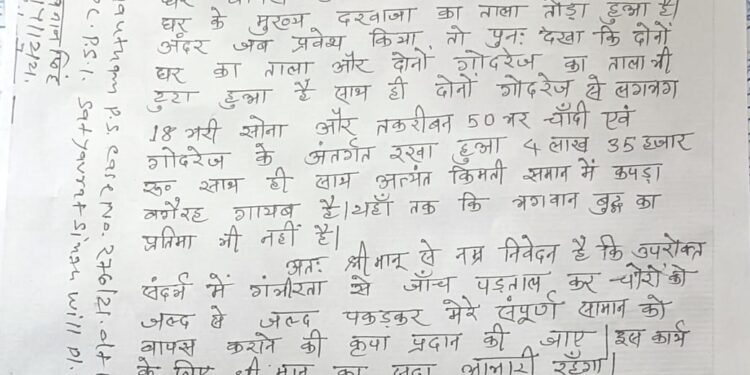 घर के मुख्य दरवाजा का ताला तोड़ा हुआ है।
अंदर जब प्रवेश किया तो पुन: देखा कि दोनों
घर का ताला और दोनों गोदरेज का ताला भी
टुटा हुआ है साथ ही दोनों गोदरेज से लगभग
18 भरी सोना और तकरीबन 50 भर चाँदी एवं
गोदरेज के अंतर्गत रखा हुआ 4 लाख 35 हजार
रू० साथ ही साथ अत्यंत किमती समान में कपड़ा
वगैरह गायब है। यहाँ तक कि भगवान बुद्ध का
प्रतिमा भी नहीं है।
अत: श्रीमान् से नम्र निवेदन है कि उपरोक्त
संदर्भ में गंभीरता से जाँच पड़ताल कर चोरों को
जल्द से जल्द पकड़कर मेरे संपूर्ण सामान को
वापस कराने की कृपा प्रदान की जाए। इस कार्य
के लिए श्रीमान का सदा आभारी रहूँगा।
P.S case No. 276/21.
P.S.I. Satyavrat Singh will